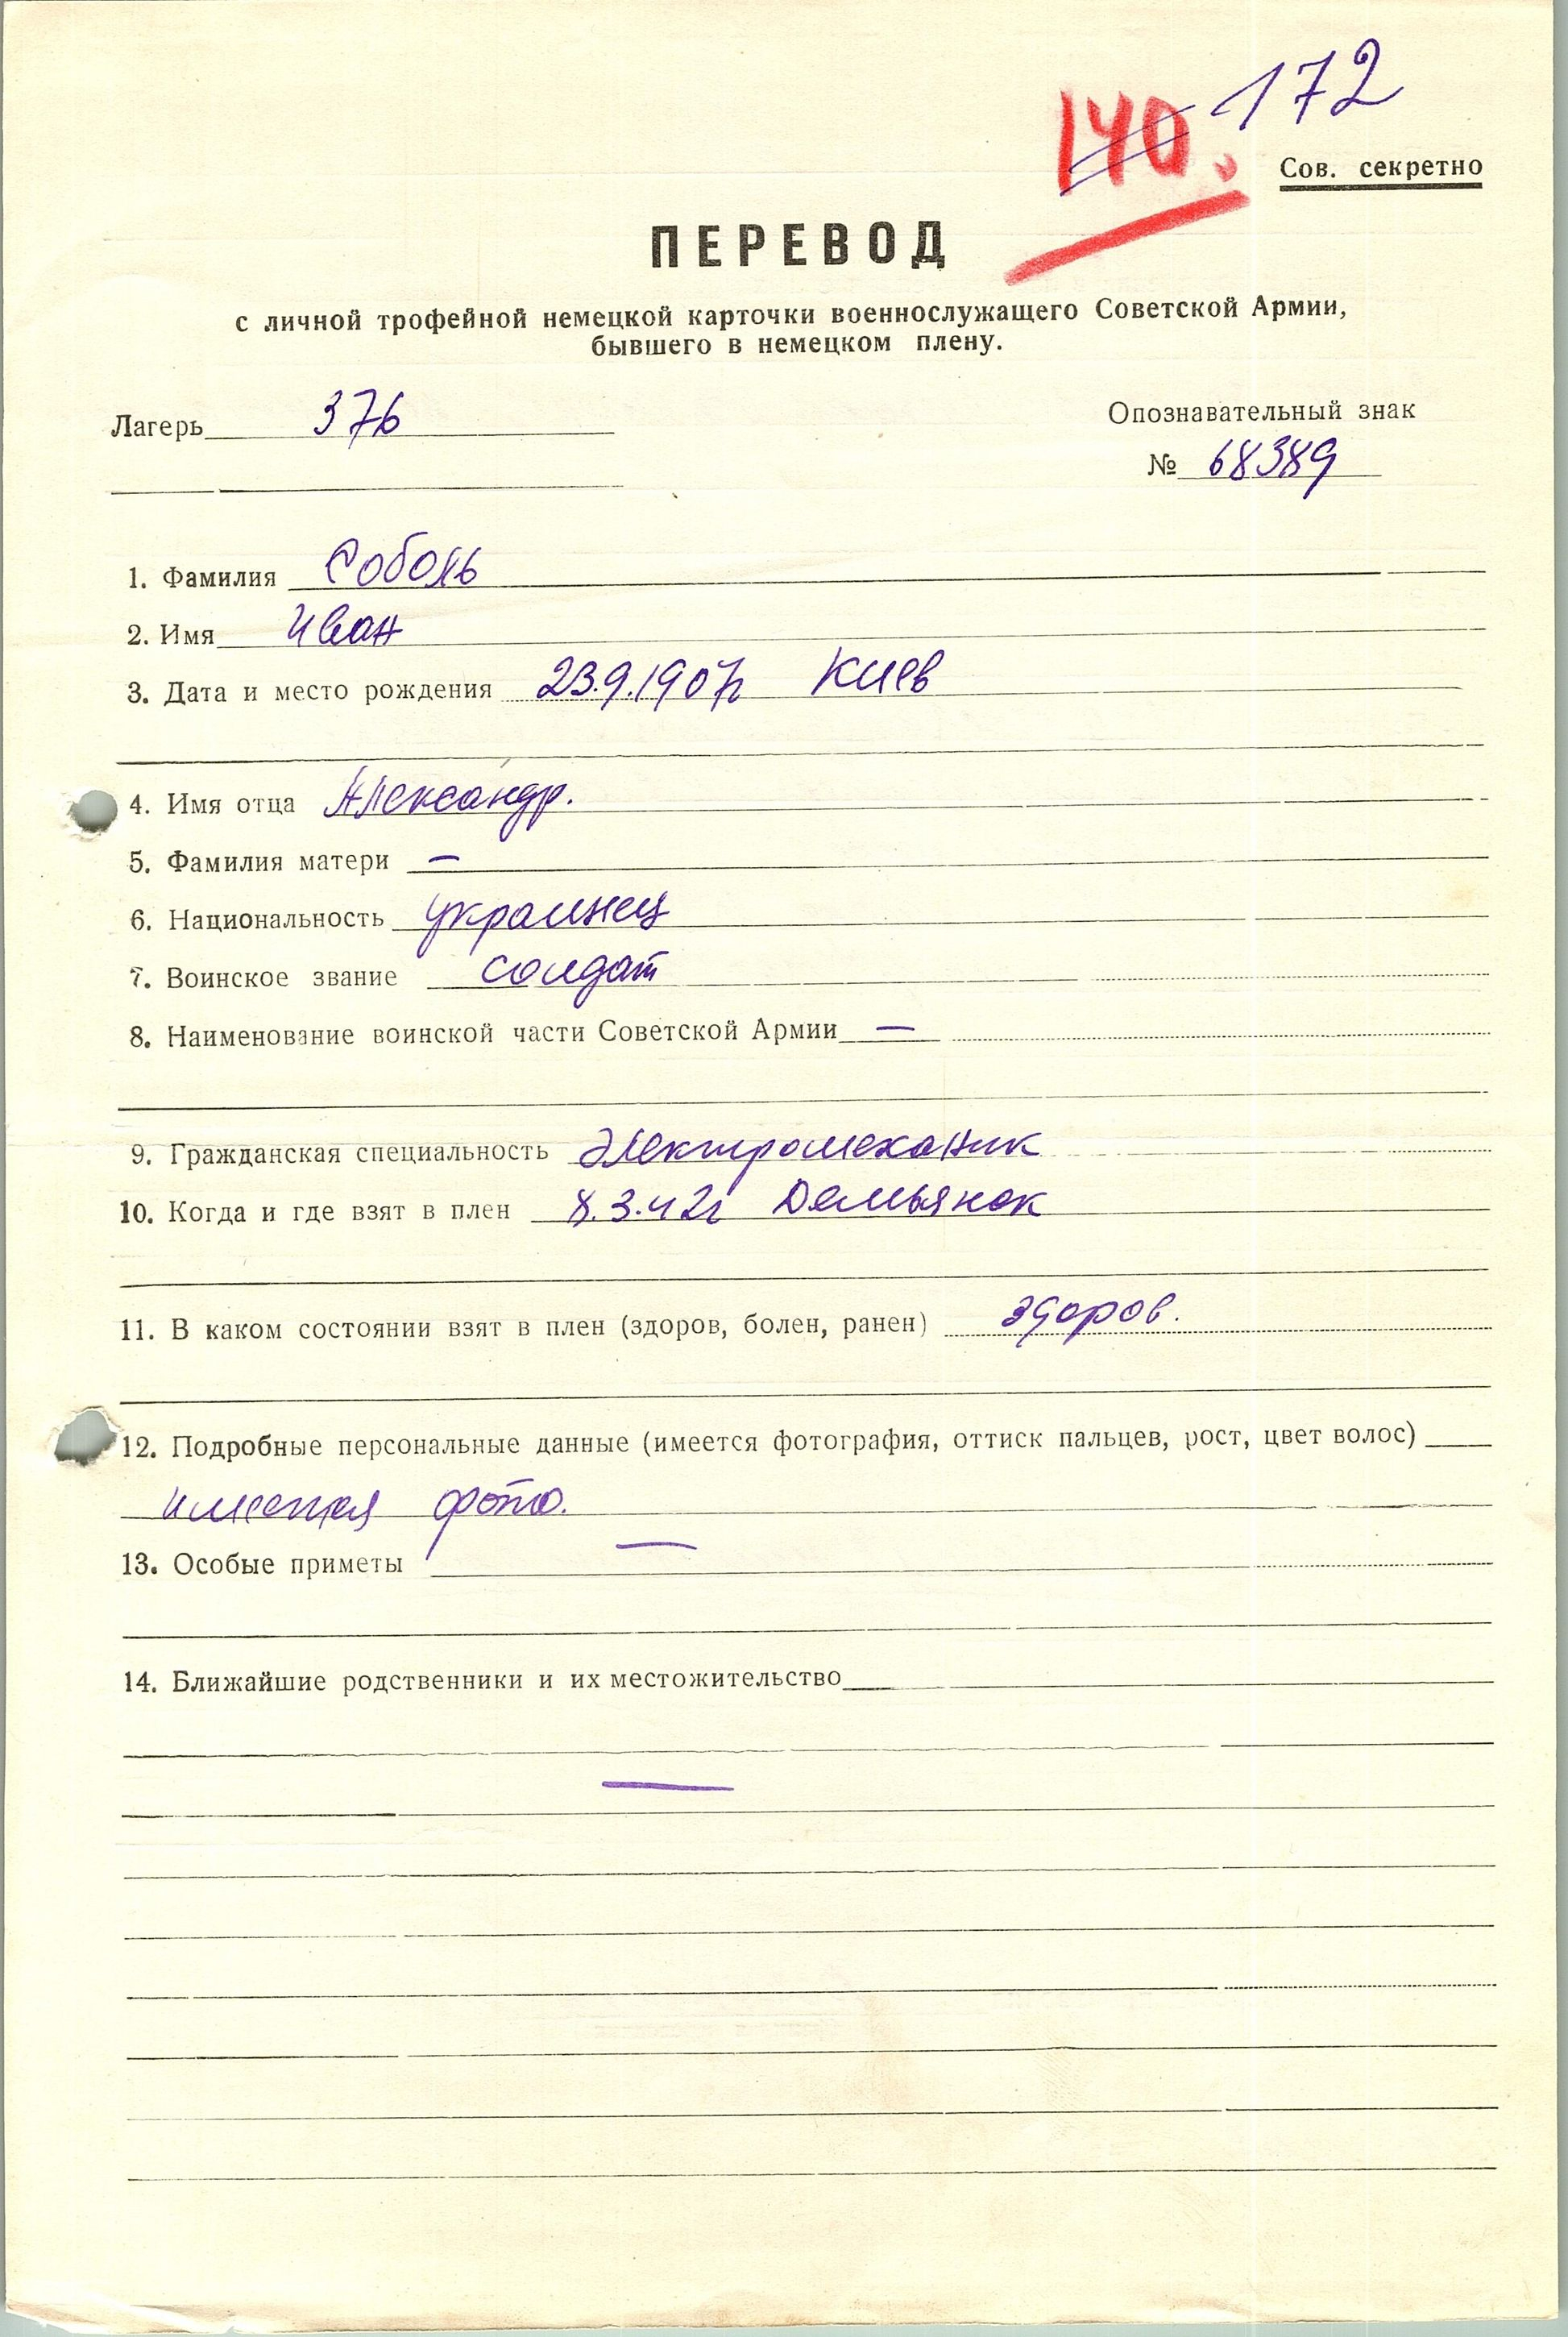 140. 172
Сов. секретно
ПЕРЕВОД
с личной трофейной немецкой карточки военнослужащего Советской Армии,
бывшего в немецком плену.
Лагерь 376
Опознавательный знак
№ 68389
1. Фамилия Соболь
2. Имя Иван
3. Дата и место рождения 23.9.1907г Киев
4. Имя отца Александр.
5. Фамилия матери —
6. Национальность украинец
7. Воинское звание солдат
8. Наименование воинской части Советской Армии —
9. Гражданская специальность электромеханик
10. Когда и где взят в плен 8.3.42г Демьянск
11. В каком состоянии взят в плен (здоров, болен, ранен) здоров.
12. Подробные персональные данные (имеется фотография, оттиск пальцев, рост, цвет волос)
имеется фото.
13. Особые приметы —
14. Ближайшие родственники и их местожительство
—